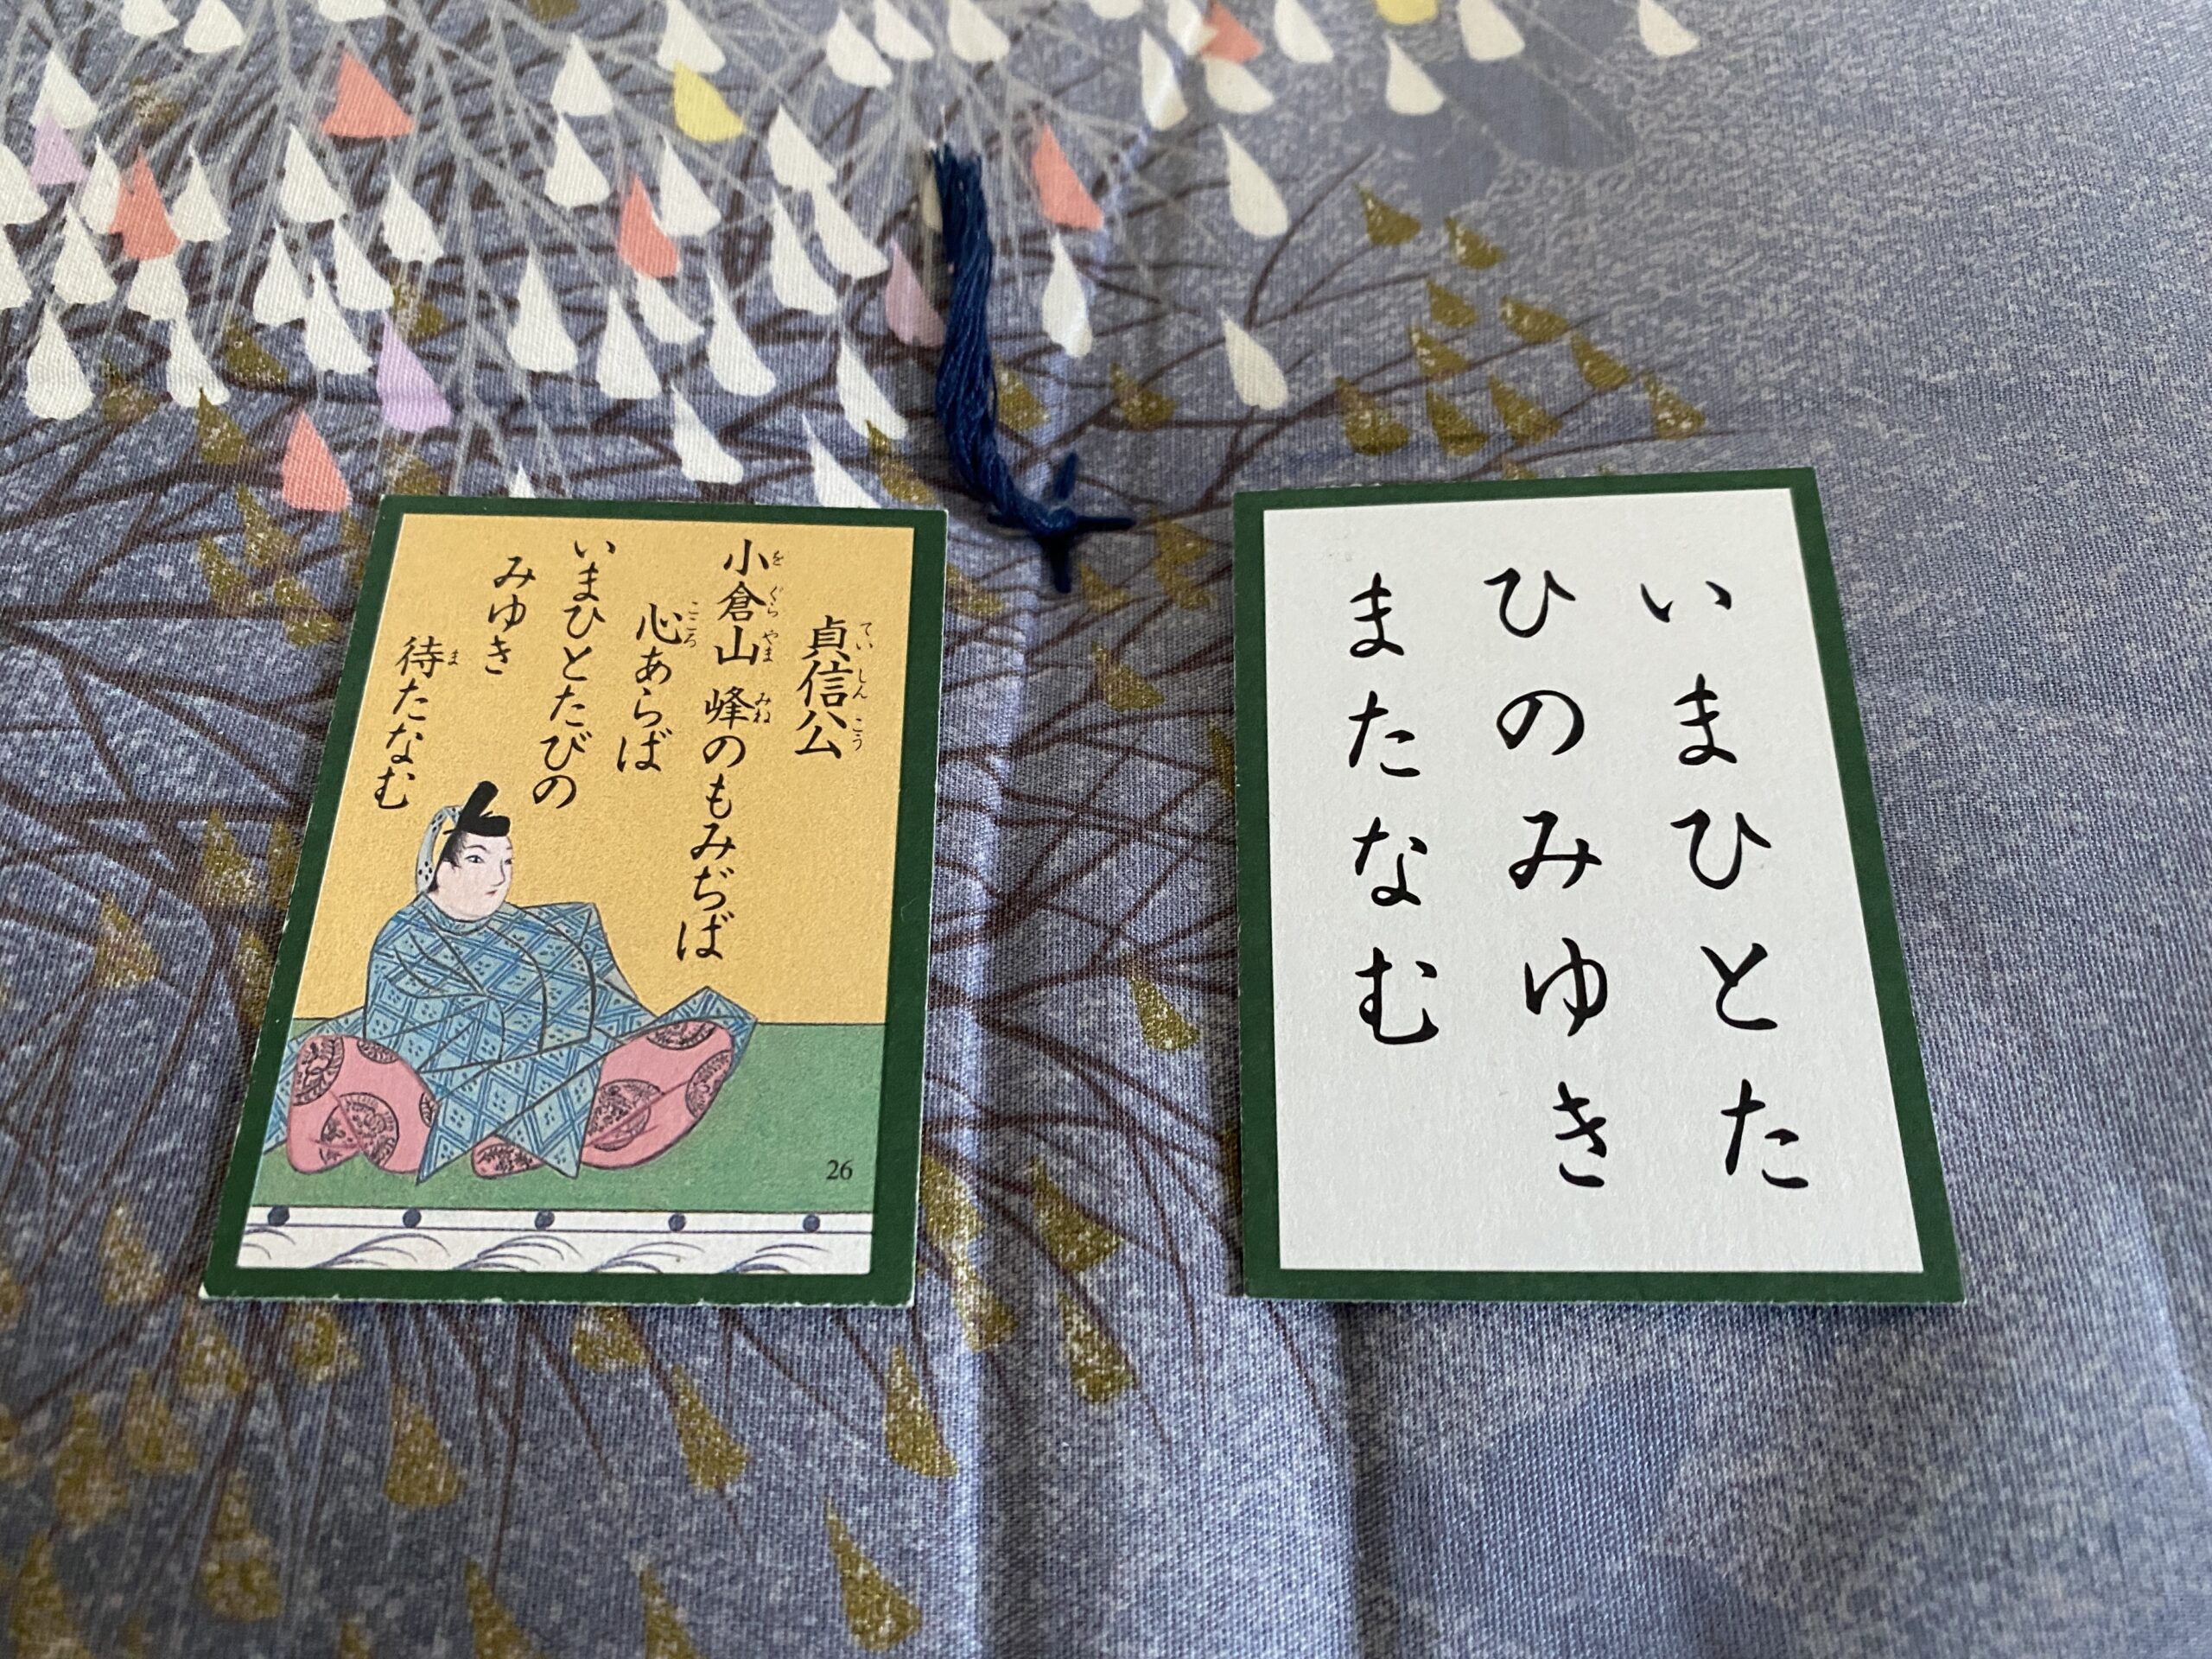 貞信公
ていしんこう
小倉山 峰のもみぢば
をぐらやま みね
心あらば
こころ
いまひとたびの
みゆき
待たなむ
ま
26
いまひとた
ひのみゆき
またなむ